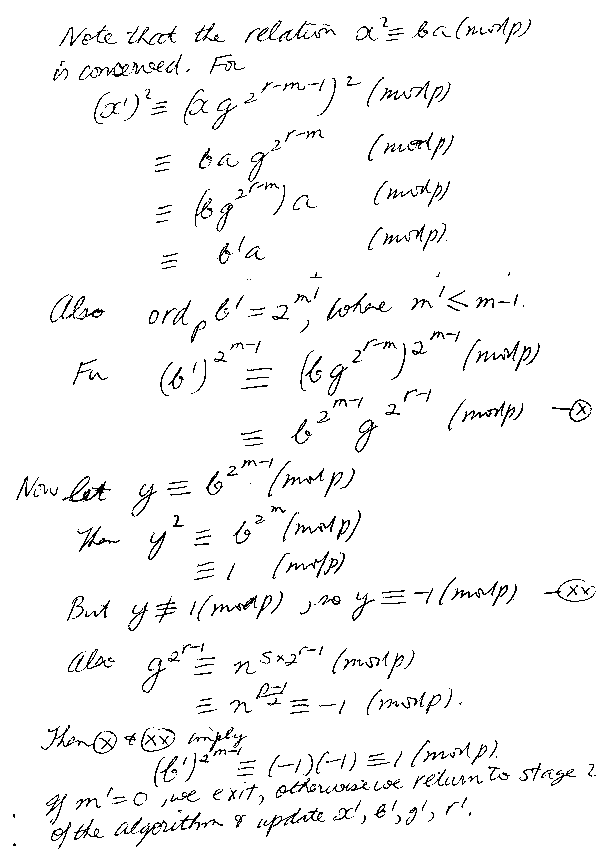 Note that the relation x² ≡ ba (mod p)
is conserved. For
(x')² ≡ (x g^{2^{r-m-1}})² (mod p)
≡ ba g^{2^{r-m}} (mod p)
≡ (b g^{2^{r-m}}) a (mod p)
≡ b'a (mod p).
Also ord_p b' = 2^{m'}, where m' ≤ m-1.
For (b')^{2^{m-1}} ≡ (b g^{2^{r-m}})^{2^{m-1}} (mod p)
≡ b^{2^{m-1}} g^{2^{r-1}} (mod p) – ⊗
Now let y ≡ b^{2^{m-1}} (mod p)
Then y² ≡ b^{2^m} (mod p)
≡ 1 (mod p)
But y ≢ 1 (mod p), so y ≡ -1 (mod p) – (xx)
Also g^{2^{r-1}} ≡ n^{S×2^{r-1}} (mod p)
≡ n^{\frac{p-1}{2}} ≡ -1 (mod p).
Then ⊗ & (xx) imply
(b')^{2^{m-1}} ≡ (-1)(-1) ≡ 1 (mod p).
If m' = 0, we exit, otherwise we return to stage 2
of the algorithm & update x', b', g', r'.